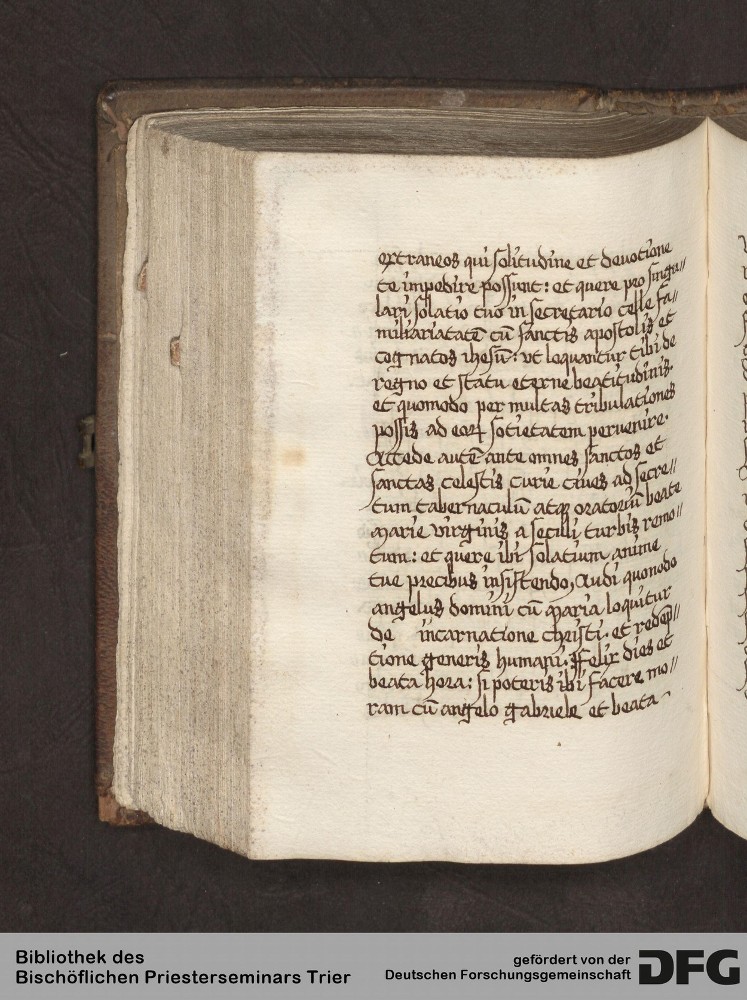 extraneos qui solitudine et deuotione
te impedire possunt: et quere pro singu//
lari solatio tuo in secretario celle fa//
miliaritatē cū sanctis apostolis et
cognatos ihesū: vt loquantur tibi de
regno et statu eterne beatitudinis.
et quomodo per multas tribulationes
possis ad eoꝝ sotietatem peruenire.
Accede autē ante omnes sanctos et
sanctas celestis curie ciues ad secre//
tum tabernaculū atqꝫ oratoriū beate
marie virginis a seculi turbis remo//
tum: et quere ibi solatium anime
tue precibus insistendo, Audi quomodo
angelus domini cū maria loquitur
de incarnatione christi. et redēp//
tione generis humani. Felix dies et
beata hora: si poteris ibi facere mo//
ram cū angelo gabriele et beata
Bibliothek des
Bischöflichen Priesterseminars Trier
gefördert von der
Deutschen Forschungsgemeinschaft
DFG